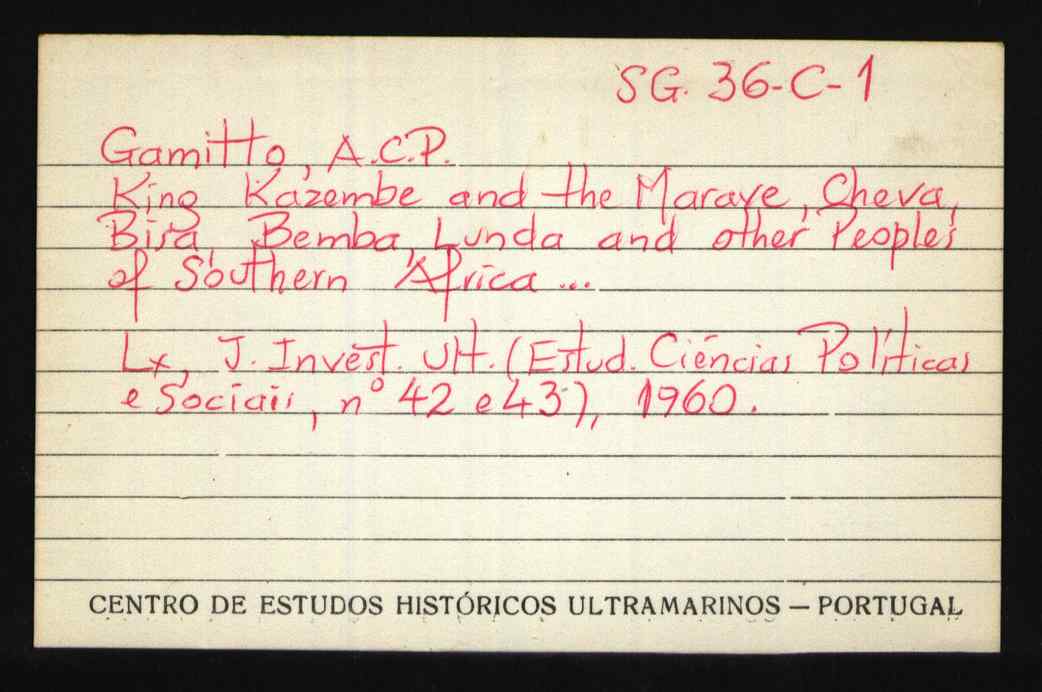 SG. 36-C-1
Gamitto, A.C.P.
King Kazembe and the Marave, Cheva,
Bisa, Bemba, Lunda and other Peoples
of Southern Africa ...
Lx, J. Invest. Ult. (Estud. Ciências Políticas
e Sociais, nº 42 e 43), 1960.
CENTRO DE ESTUDOS HISTÓRICOS ULTRAMARINOS — PORTUGAL